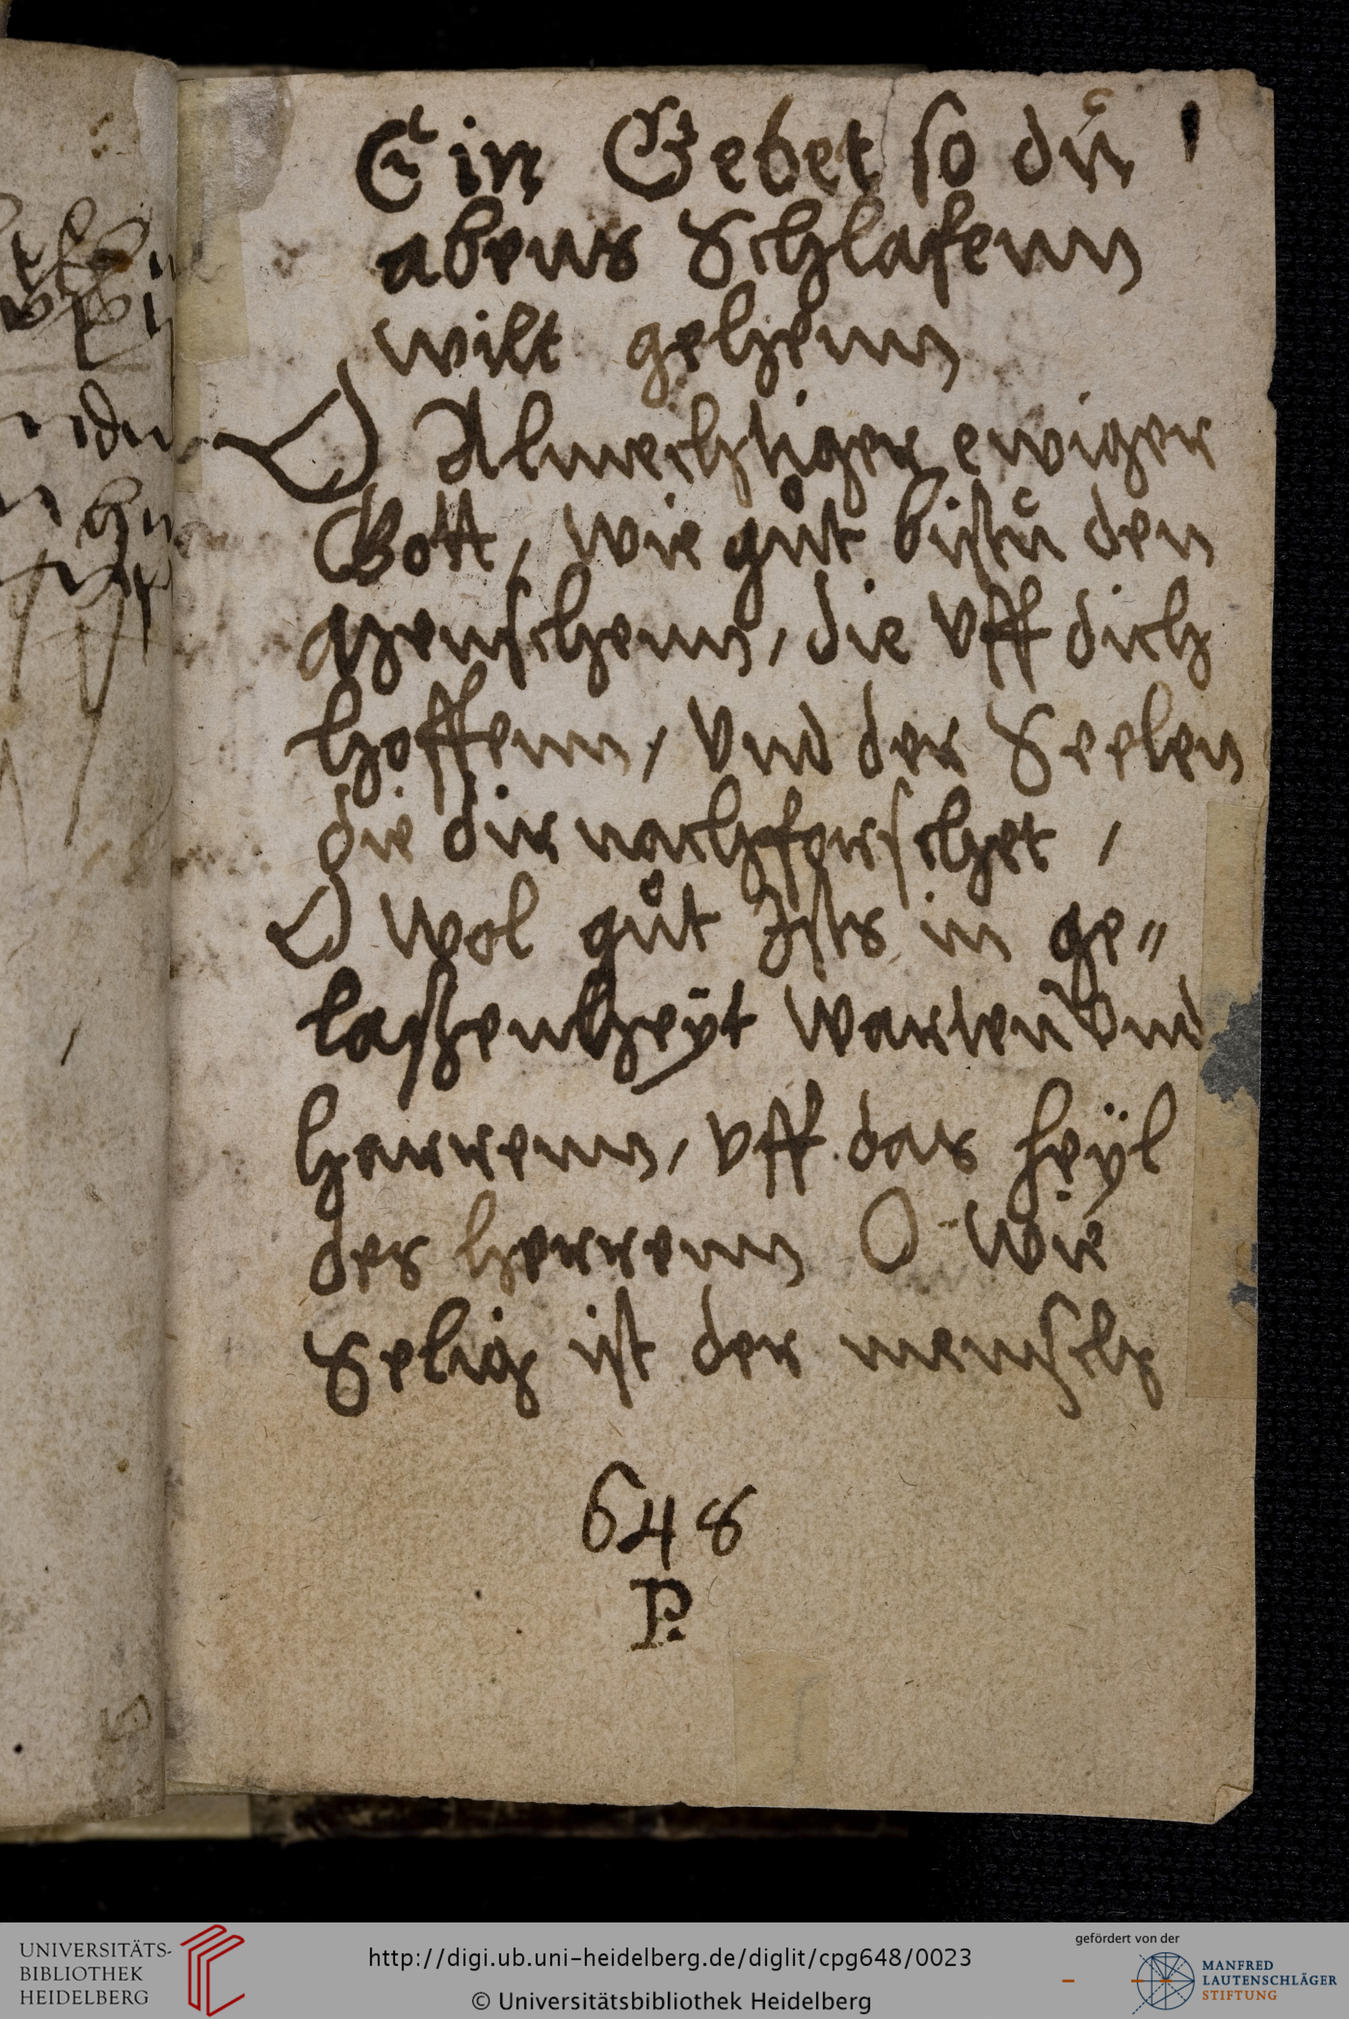 Ein Gebet so dů 1
abens Schlafenn
wilt gehenn
O Almechtiger ewiger
Gott, wie gůt bistů den
menschenn, die vff dich
hoffenn, vnd der Seelen
die dir nachforschet,
O wol gůt ists in ge„
laßenheÿt warten vnd
harrenn, vff das heÿl
des herrenn O wie
Selig ist der mensch
648
P.
UNIVERSITÄTS-
BIBLIOTHEK
HEIDELBERG
http://digi.ub.uni-heidelberg.de/diglit/cpg648/0023
© Universitätsbibliothek Heidelberg
gefördert von der
MANFRED
LAUTENSCHLÄGER
STIFTUNG